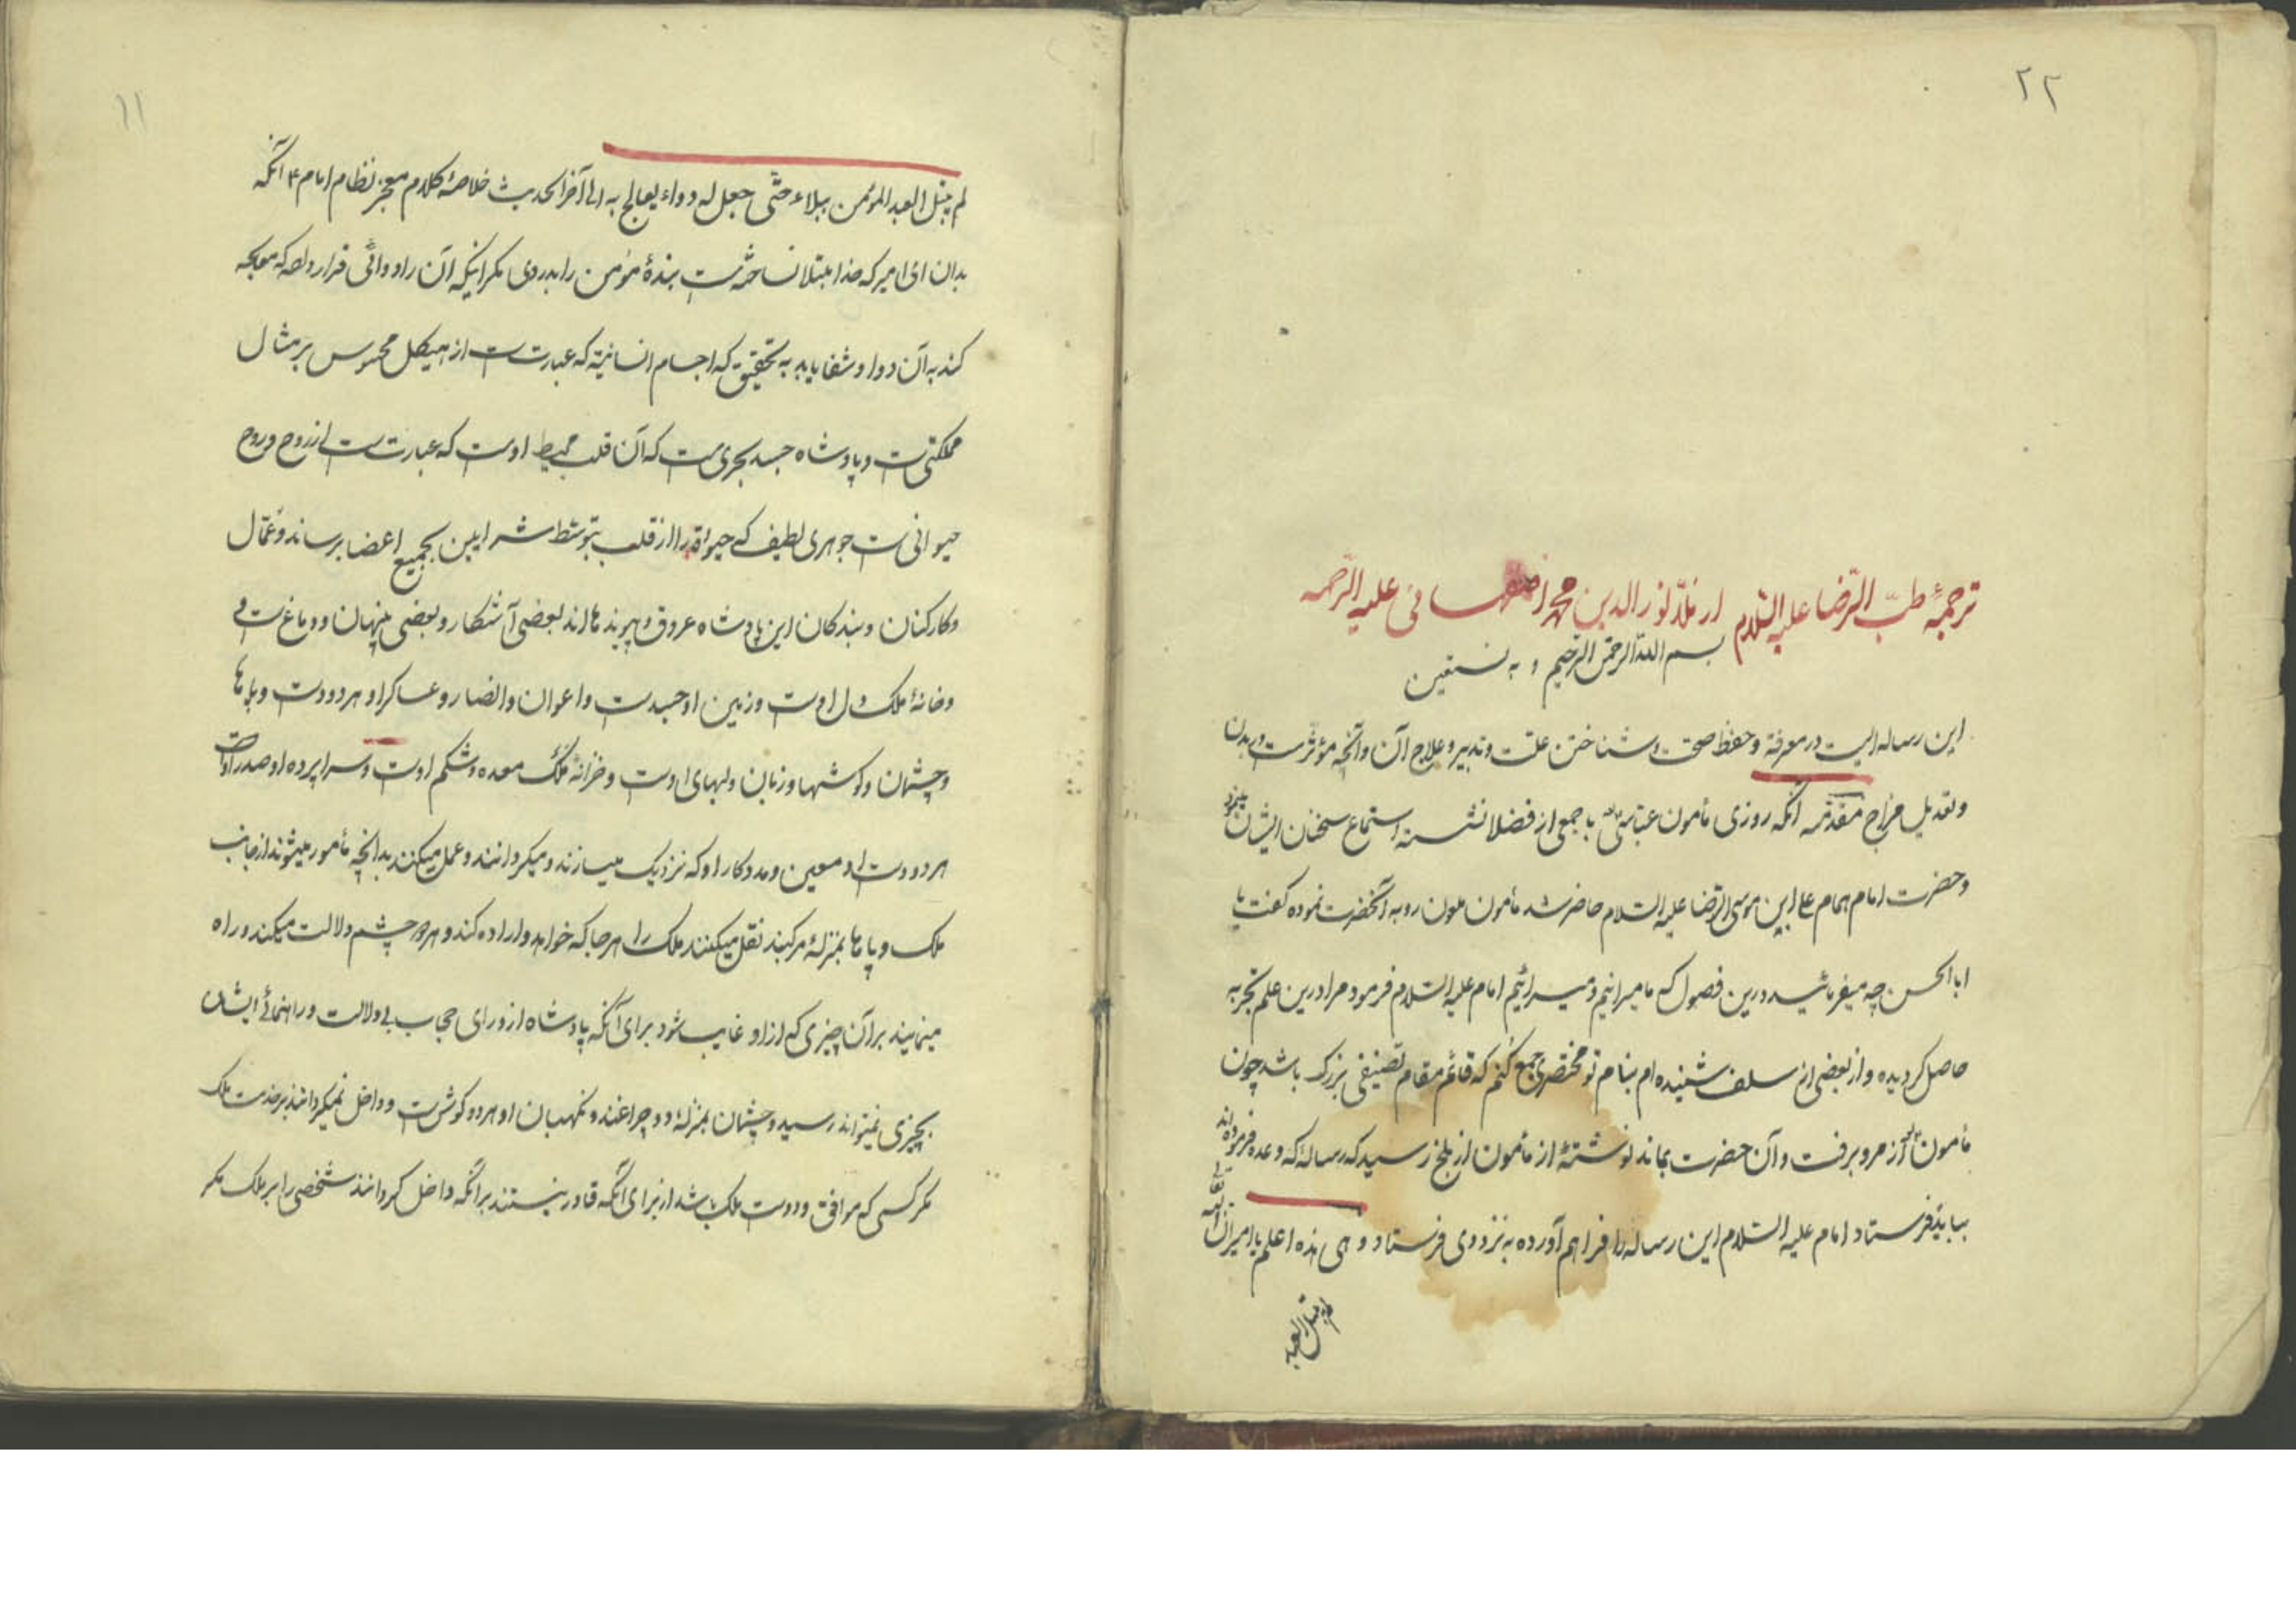 ۲۲
ترجمهٔ طبّ الرّضا علیه السّلام از ملّا نور الدین محمد اصفهانی علیه الرّحمه
بسم اللّه الرّحمن الرّحیم و به نستعین
این رساله ایست در معرفة و حفظ صحّت و شناختن علّت و تدبیر و علاج آن و آنچه مؤثّرست در بدن
و تعدیل مزاج مقدّمه آنکه روزی مأمون عبّاسی با جمعی از فضلا نشسته استماع سخنان ایشان مینمود
و حضرت امام همام علی ابن موسی الرّضا علیه السّلام حاضر شد مأمون ملعون رو به آنحضرت نموده گفت یا
ابا الحسن چه میفرمائید درین فصول که ما میرانیم و میسرائیم امام علیه السّلام فرمود مرا درین علم تجربه
حاصل گردیده و از بعضی از سلف شنیده ام بنام تو مختصری جمع کنم که قائم مقام تصنیفی بزرگ باشد چون
مأمون از مرو برفت و آن حضرت بماند نوشتهٔ از مأمون از بلخ رسید که رسالهٔ که وعده فرموده اند
بباید فرستاد امام علیه السّلام این رساله را فراهم آورده به نزد وی فرستاد و هی هذه اعلم یا امیر انّ اللّه تعالی
لم یبتل العبد
۱۱
لم یبتل العبد المؤمن ببلاء حتّی جعل له دواء یعالج به الی آخر الحدیث خلاصهٔ کلام معجز نظام امام ۴ آنکه
بدان ای امیر که خدا مبتلا نساخته است بندهٔ مؤمن را بدردی مگر اینکه آن را دوائی قرار داده که معالجه
کند به آن دوا و شفا یابد به تحقیق که اجسام انسانیّه که عبارتست از هیکل محسوس بر مثال
مملکتی است و پادشاه جسد بحری است که آن قلب محیط اوست که عبارتست از روح و روح
حیوانی است جوهری لطیف که حیوة را از قلب بتوسّط شرایین بجمیع اعضا برساند و عمّال
و کارکنان و بندگان این پادشاه عروق و پیوندها اند بعضی آشکار و بعضی پنهان و دماغ است و
و خانهٔ ملک دل اوست و زمین او جسدست و اعوان و انصار و عساکر او هر دو دست و پاها
و چشمان و گوشها و زبان و لبهای اوست و خزانهٔ ملک معده و شکم اوست و سراپرده او صدر اوست
هر دو دست او معین و مددکار او که نزدیک میسازند و میگردانند و عمل میکنند بدانچه مأمور میشوند از جانب
ملک و پاها بمنزلهٔ مرکبند نقل میکنند ملک را هر جا که خواهد و اراده کند و هر دو چشم دلالت میکند و راه
مینمایند بر آن چیزی که از او غایب شود برای آنکه پادشاه از ورای حجاب بی دلالت و راهنمائی ایشان
بچیزی نمیتواند رسید و چشمان بمنزلهٔ دو چراغند و نگهبان او هر دو گوش است و داخل نمیگردانند بر خدمت ملک
مگر کسی که موافق و دوست ملک باشد از برای آنکه قادر نیستند بر آنکه داخل گردانند شخصی را بر ملک مگر